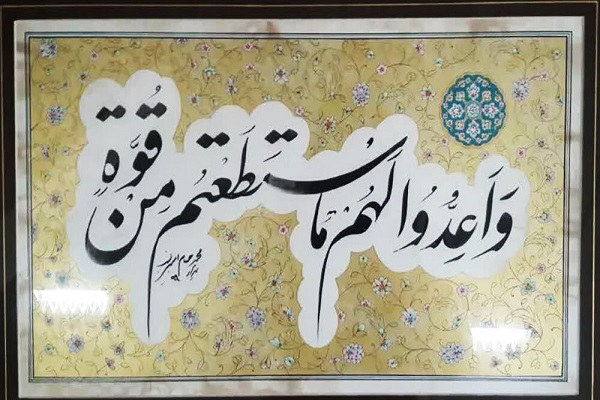 وَاَعِدُّوا لَهُمْ مَا سْتَطَعْتُمْ مِنْ قُوَّةٍ